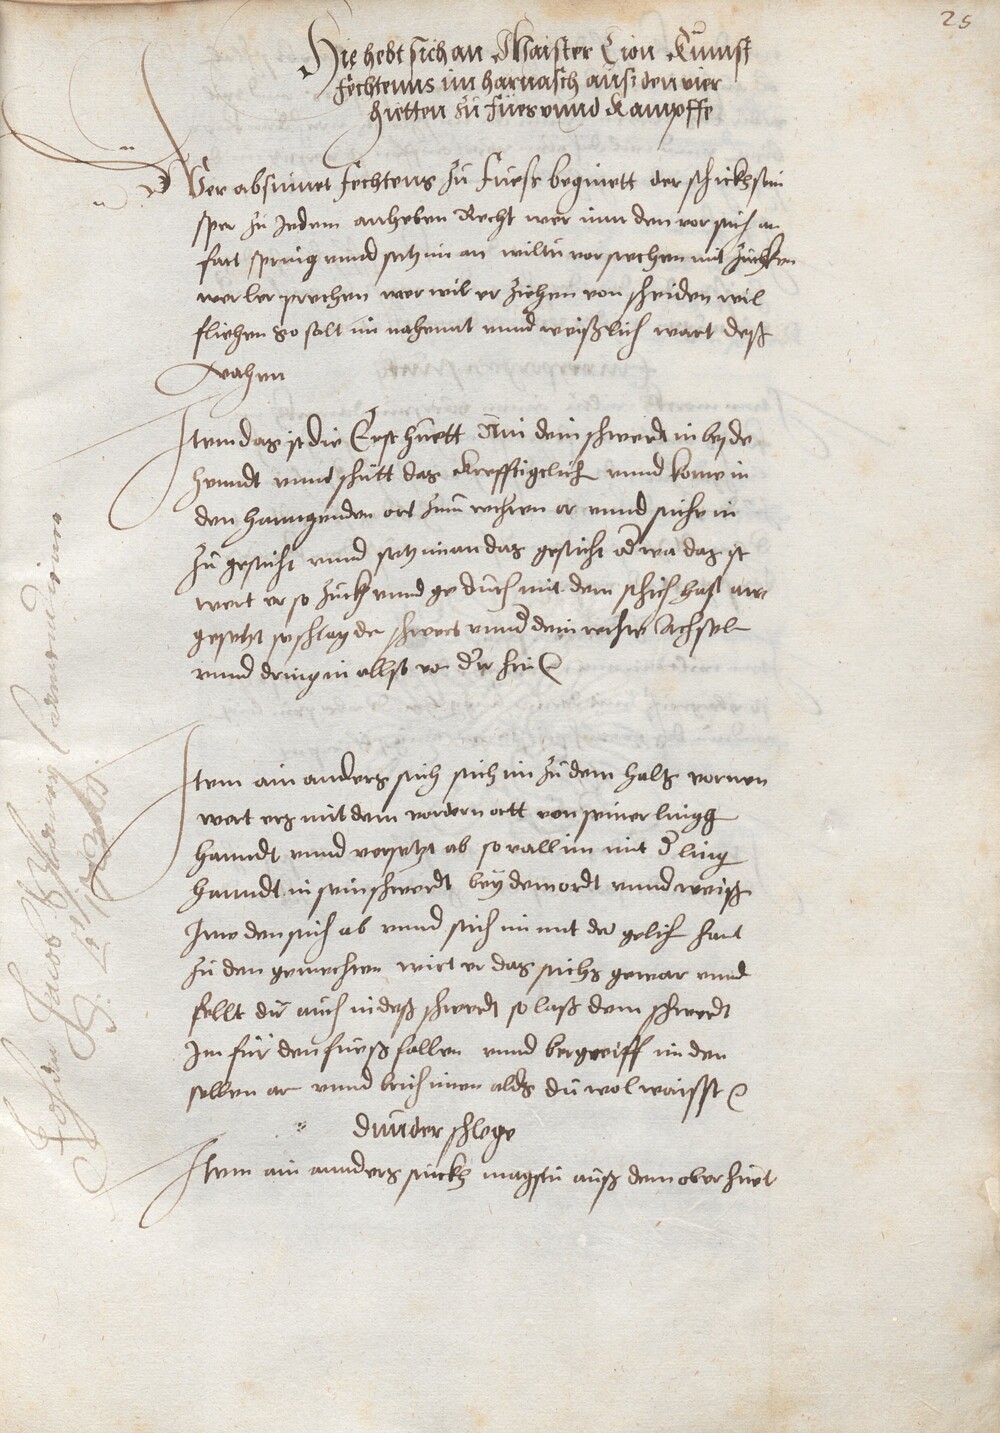 25
Hie hebt sich an Maister Lion Kunnst
fechtenns im harnasch aus den vier
huetten zu fues vnnd Kampffe
Wer absinnet fechtens Zu Fuess beginett der schickh sein
sper Zu Jedem anheben Recht wer inn den vor sich an
fart spring vnnd setz im an wiltu vorstechen mit Zuckhen
wer ler prechen wer wil er Ziehen von sheiden wil
fliehen so solt im nahennt vnnd weisslich wart dess
vahen
Item das ist die Erst huett Nim dein shwerdt in beyde
henndt vnnd shutt das krefftigclich vnnd kome in
den hanngenden ort Zum rechten or vnnd stiche in
Zu gesicht vnnd setz im an das gesicht od wa das ist
wert er so Zuckh vnnd ge durch mit dem stich hast an
gesetzt so shlag de shwert vnnd dein rechte Achsel
vnnd dring in allso vor dir hin
Item ain anders stich stich im Zu dem halss vornen
wert ers mit dem vordern ortt von seiner lingg
hanndt vnnd versetzt ab so vall im mit d ling
hanndt in sein shwerdt bey dem ordt vnnd weiss
Jme den stich ab vnnd stich im mit der gelich hant
Zu den gemechten wirt er das stichs gewar vnnd
fellt dir auch in dess shwerdt so lass dem shwerdt
Im fur den fuess fallen vnnd begreiff im den
selben ar vnnd brich imen als du wol waisst
dunder shlege
Item ain annders stuckh magstu auss dem ober huet